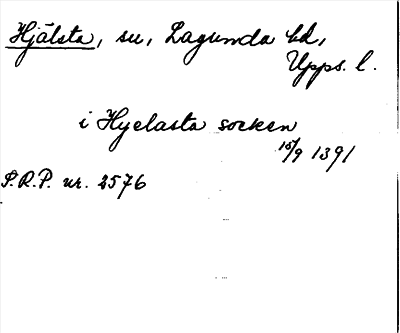 Hjälsta, sn, Lagunda hd,
Upps. l.
i Hyelasta socken
15/9 1391
S.R.P. nr. 2576